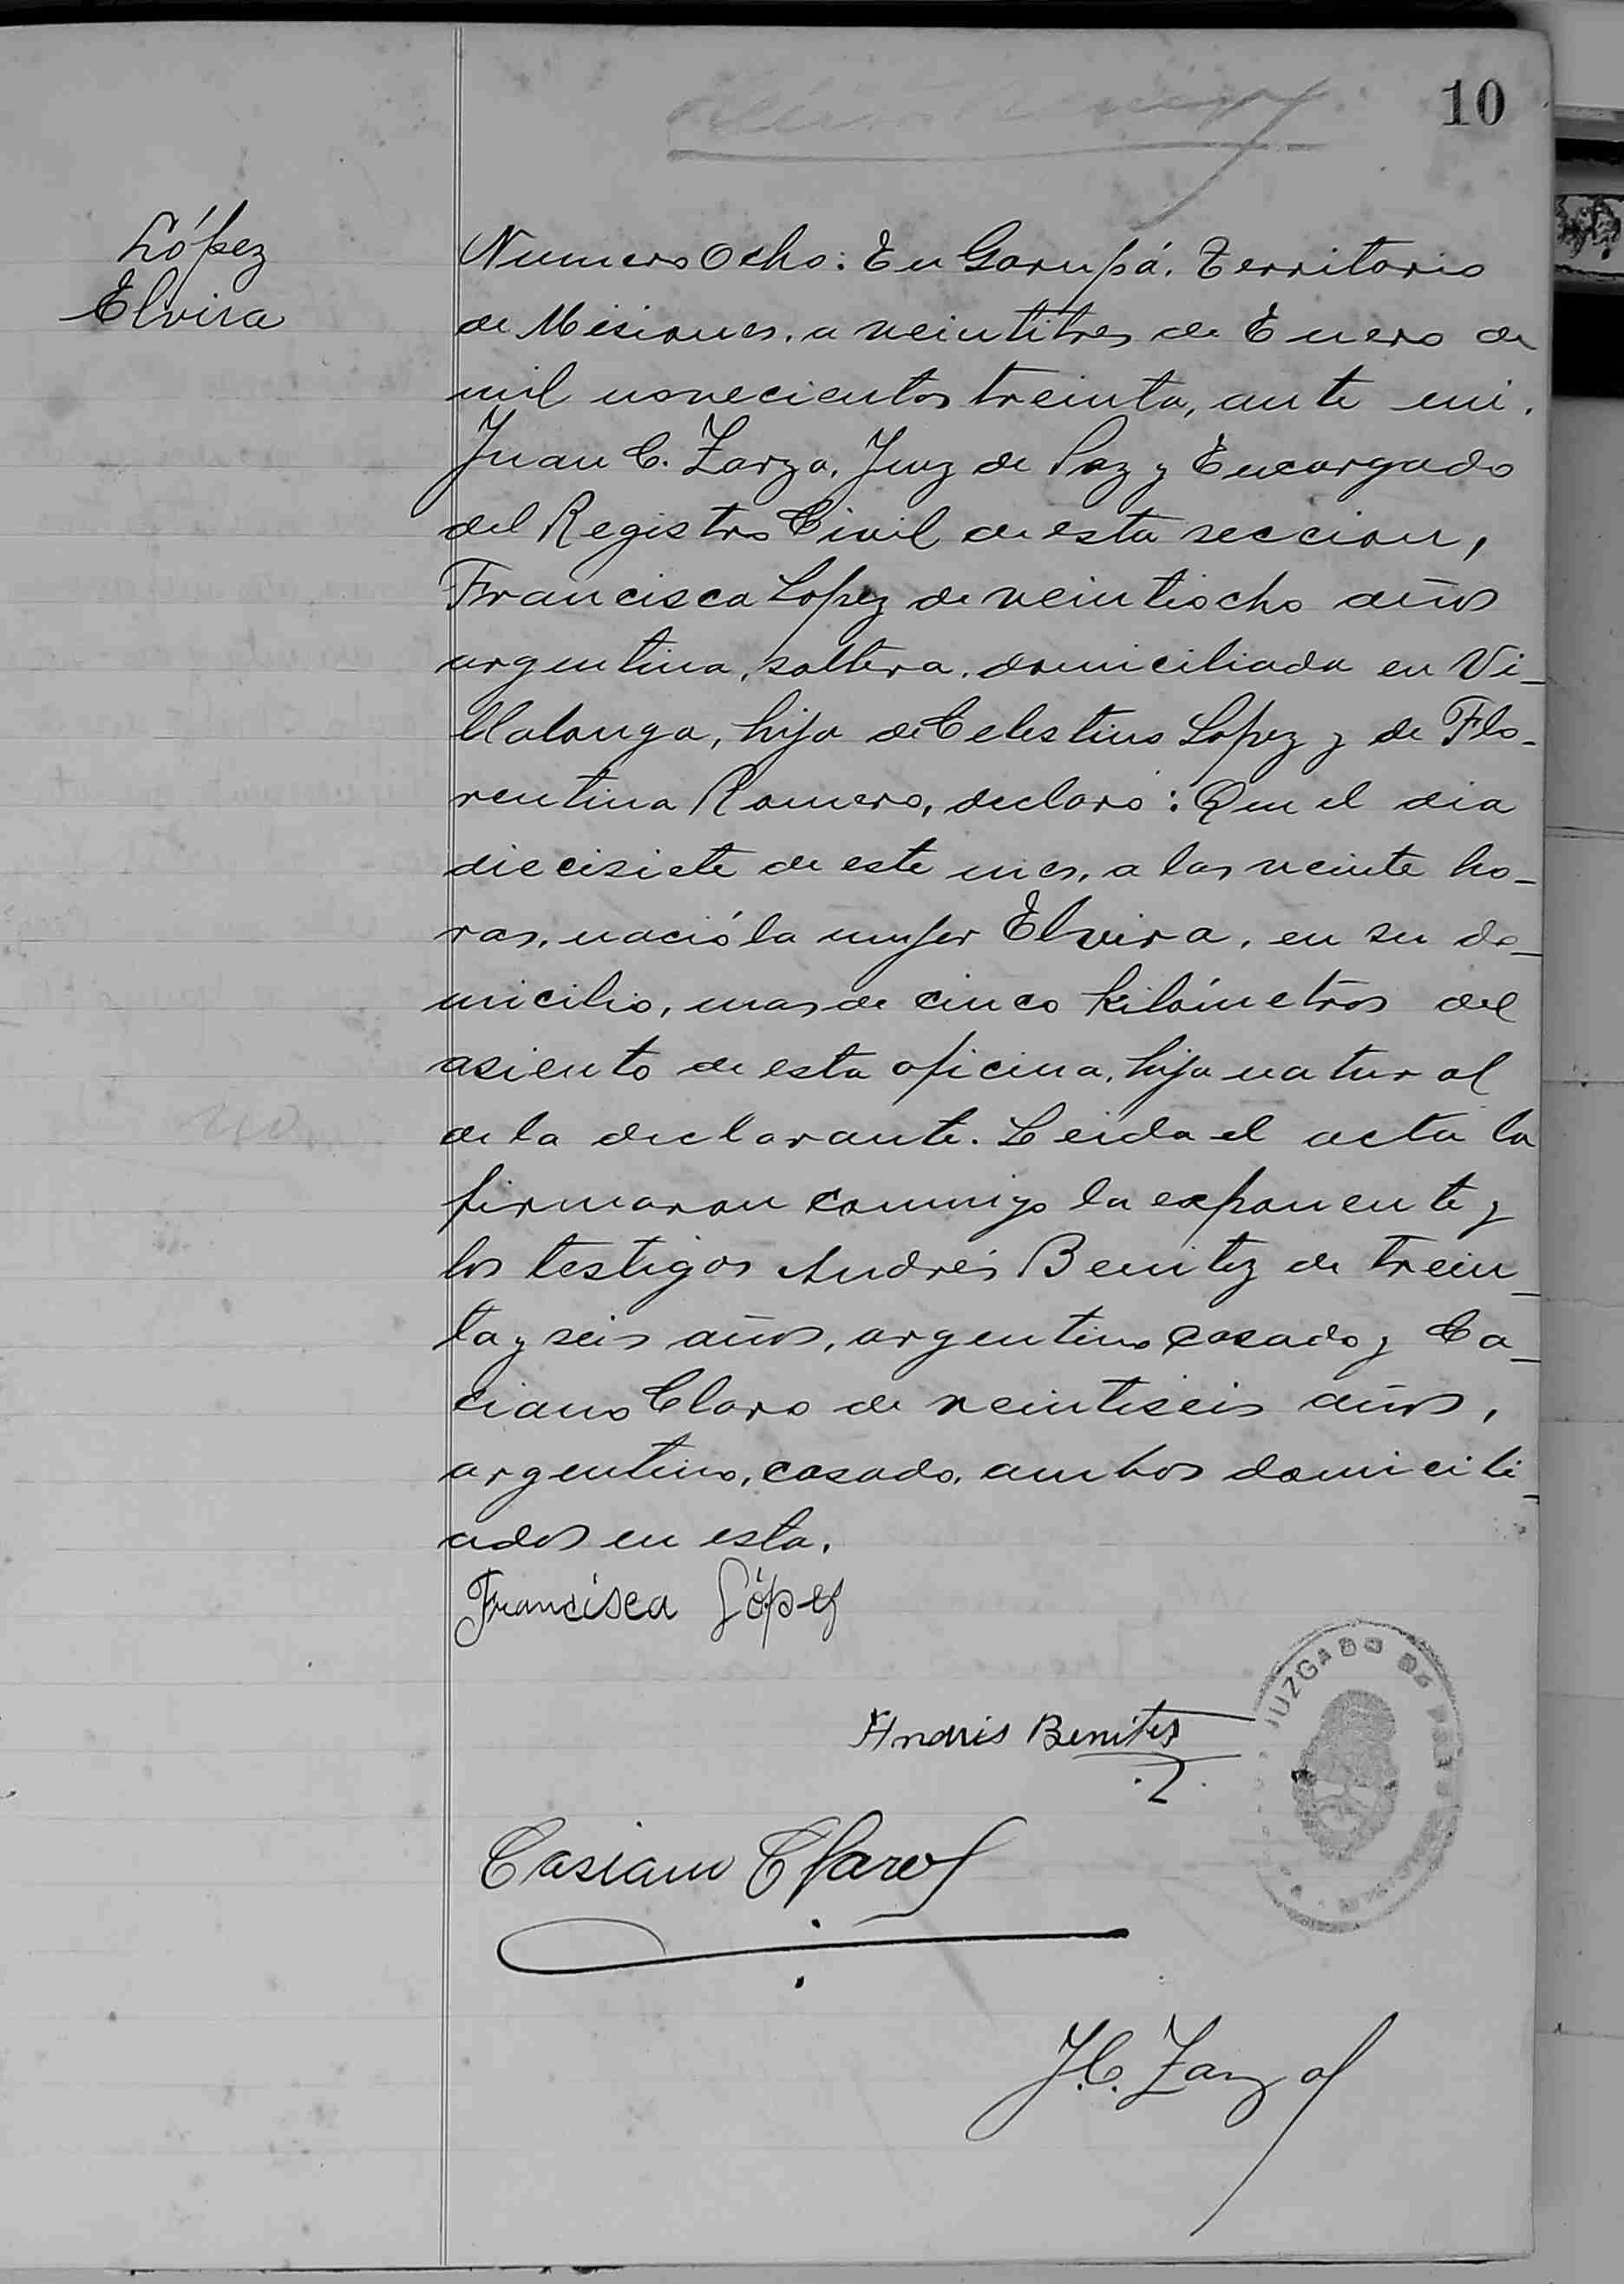 10
López
Elvira
Numero Ocho: En Garupá. Territorio
de Misiones. a veintitres de Enero de
mil novecientos treinta, ante mi.
Juan C. Zarza. Juez de Paz y Encargado
del Registro Civil de esta seccion,
Francisca Lopez de veintiocho años
argentina, soltera. domiciliada en Vi-
llalonga, hija de Celestino Lopez y de Flo-
rentina Romero, declaró: Que el dia
diecisiete de este mes. a las veinte ho-
ras. nació la mujer Elvira. en su do-
micilio, mas de cinco kilómetros del
asiento de esta oficina. hija natural
de la declarante. Leida el acta la
firmaron conmigo la exponente y
los testigos Andrés Benitez de trein-
ta y seis años, argentino casado y Ca-
ciano Claro de veintiseis años,
argentino, casado. ambos domicili-
ados en esta.
Francisca López
Andrés Benites
Casiano Claro
JUZGADO DE PAZ
J.C. Zarza